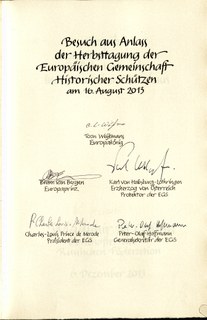 Besuch aus Anlass
der Herbsttagung der
Europäischen Gemeinschaft
Historischer Schützen
am 16. August 2013
Europakönig
Karl von Habsburg-Lothringen
Erzherzog von Österreich
Protektor der EGS
Europaprinz
Charles-Louis Prince de Merode
Präsident der EGS
Peter-Olaf Hoffmann
Generalsekretär der EGS